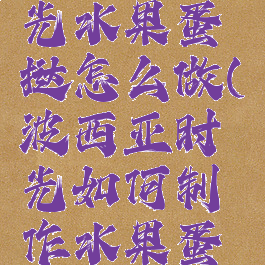 光水果蛋
挞怎么做(
波西亚时
光如何制
作水果蛋